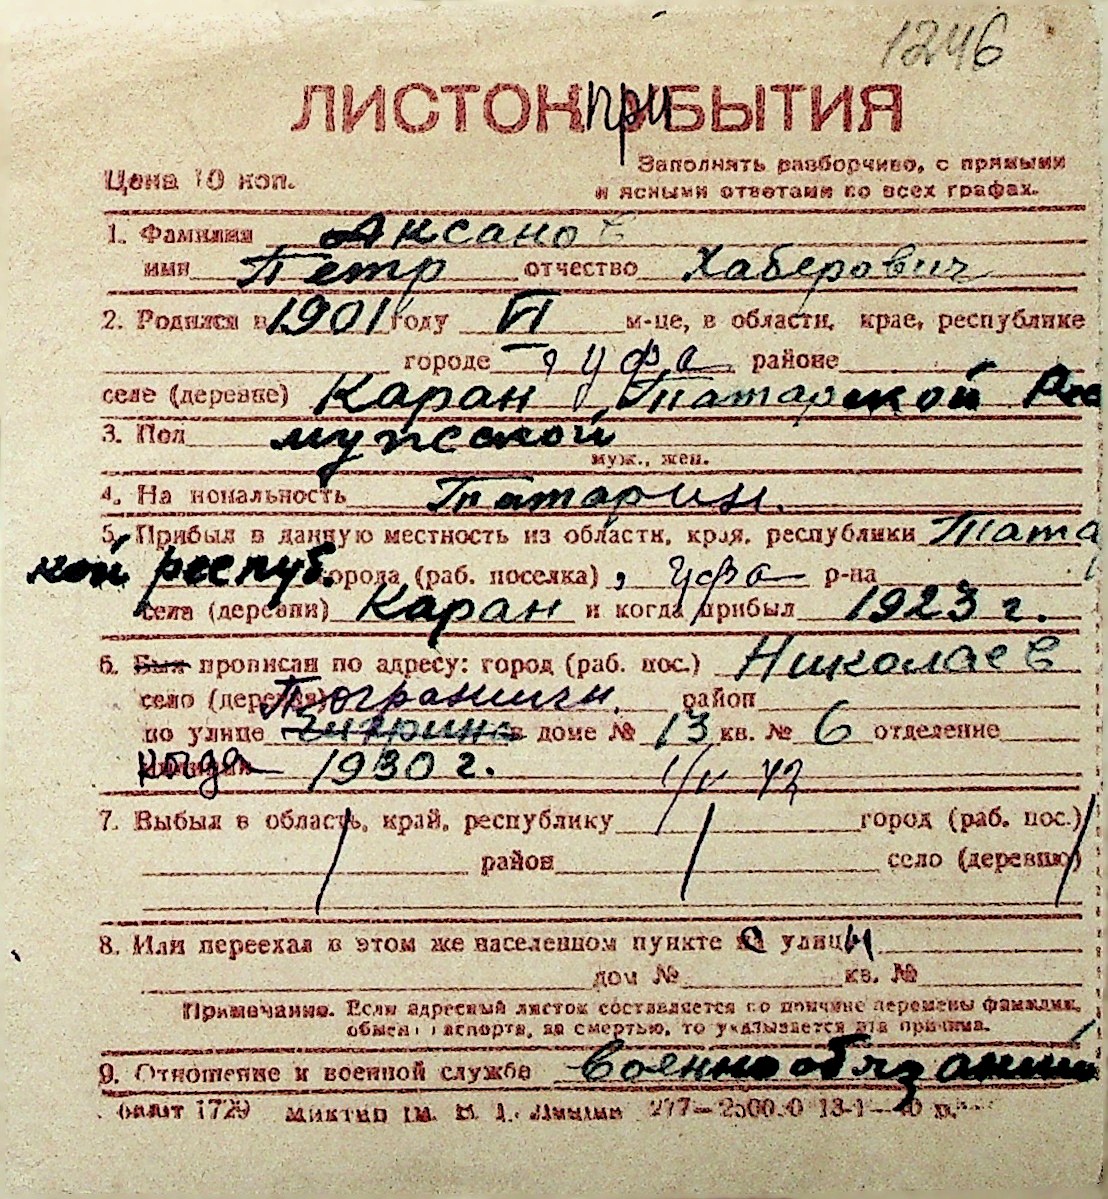 1246
ЛИСТОК приБЫТИЯ
Заполнять разборчиво, с прямыми
Цена 10 коп.
и ясными ответами во всех графах.
1. Фамилия Аксанов
имя Петр отчество Хаберович
2. Родился в 1901 году VI м-це, в области, крае, республике
городе Уфа районе
селе (деревне) Каран Татарской Рес
3. Пол мужской
муж., жен.
4. На иональность Татарин.
5. Прибыл в данную местность из области, края, республики Тата
кой респуб. города (раб. поселка), Уфа р-на
села (деревни) Каран и когда прибыл 1923 г.
6. Был прописан по адресу: город (раб. пос.) Николаев
село (деревня) Погранични. район
по улице в доме № 13 кв. № 6 отделение
когда 1930 г.
7. Выбыл в область, край, республику город (раб. пос.)
район село (деревню)
8. Или переехал в этом же населенном пункте с улицы
дом № кв. №
Примечание. Если адресный листок составляется по причине перемены фамилии,
обмен паспорта, за смертью, то указывается эта причина.
9. Отношение к военной службе военнообязаний
1729